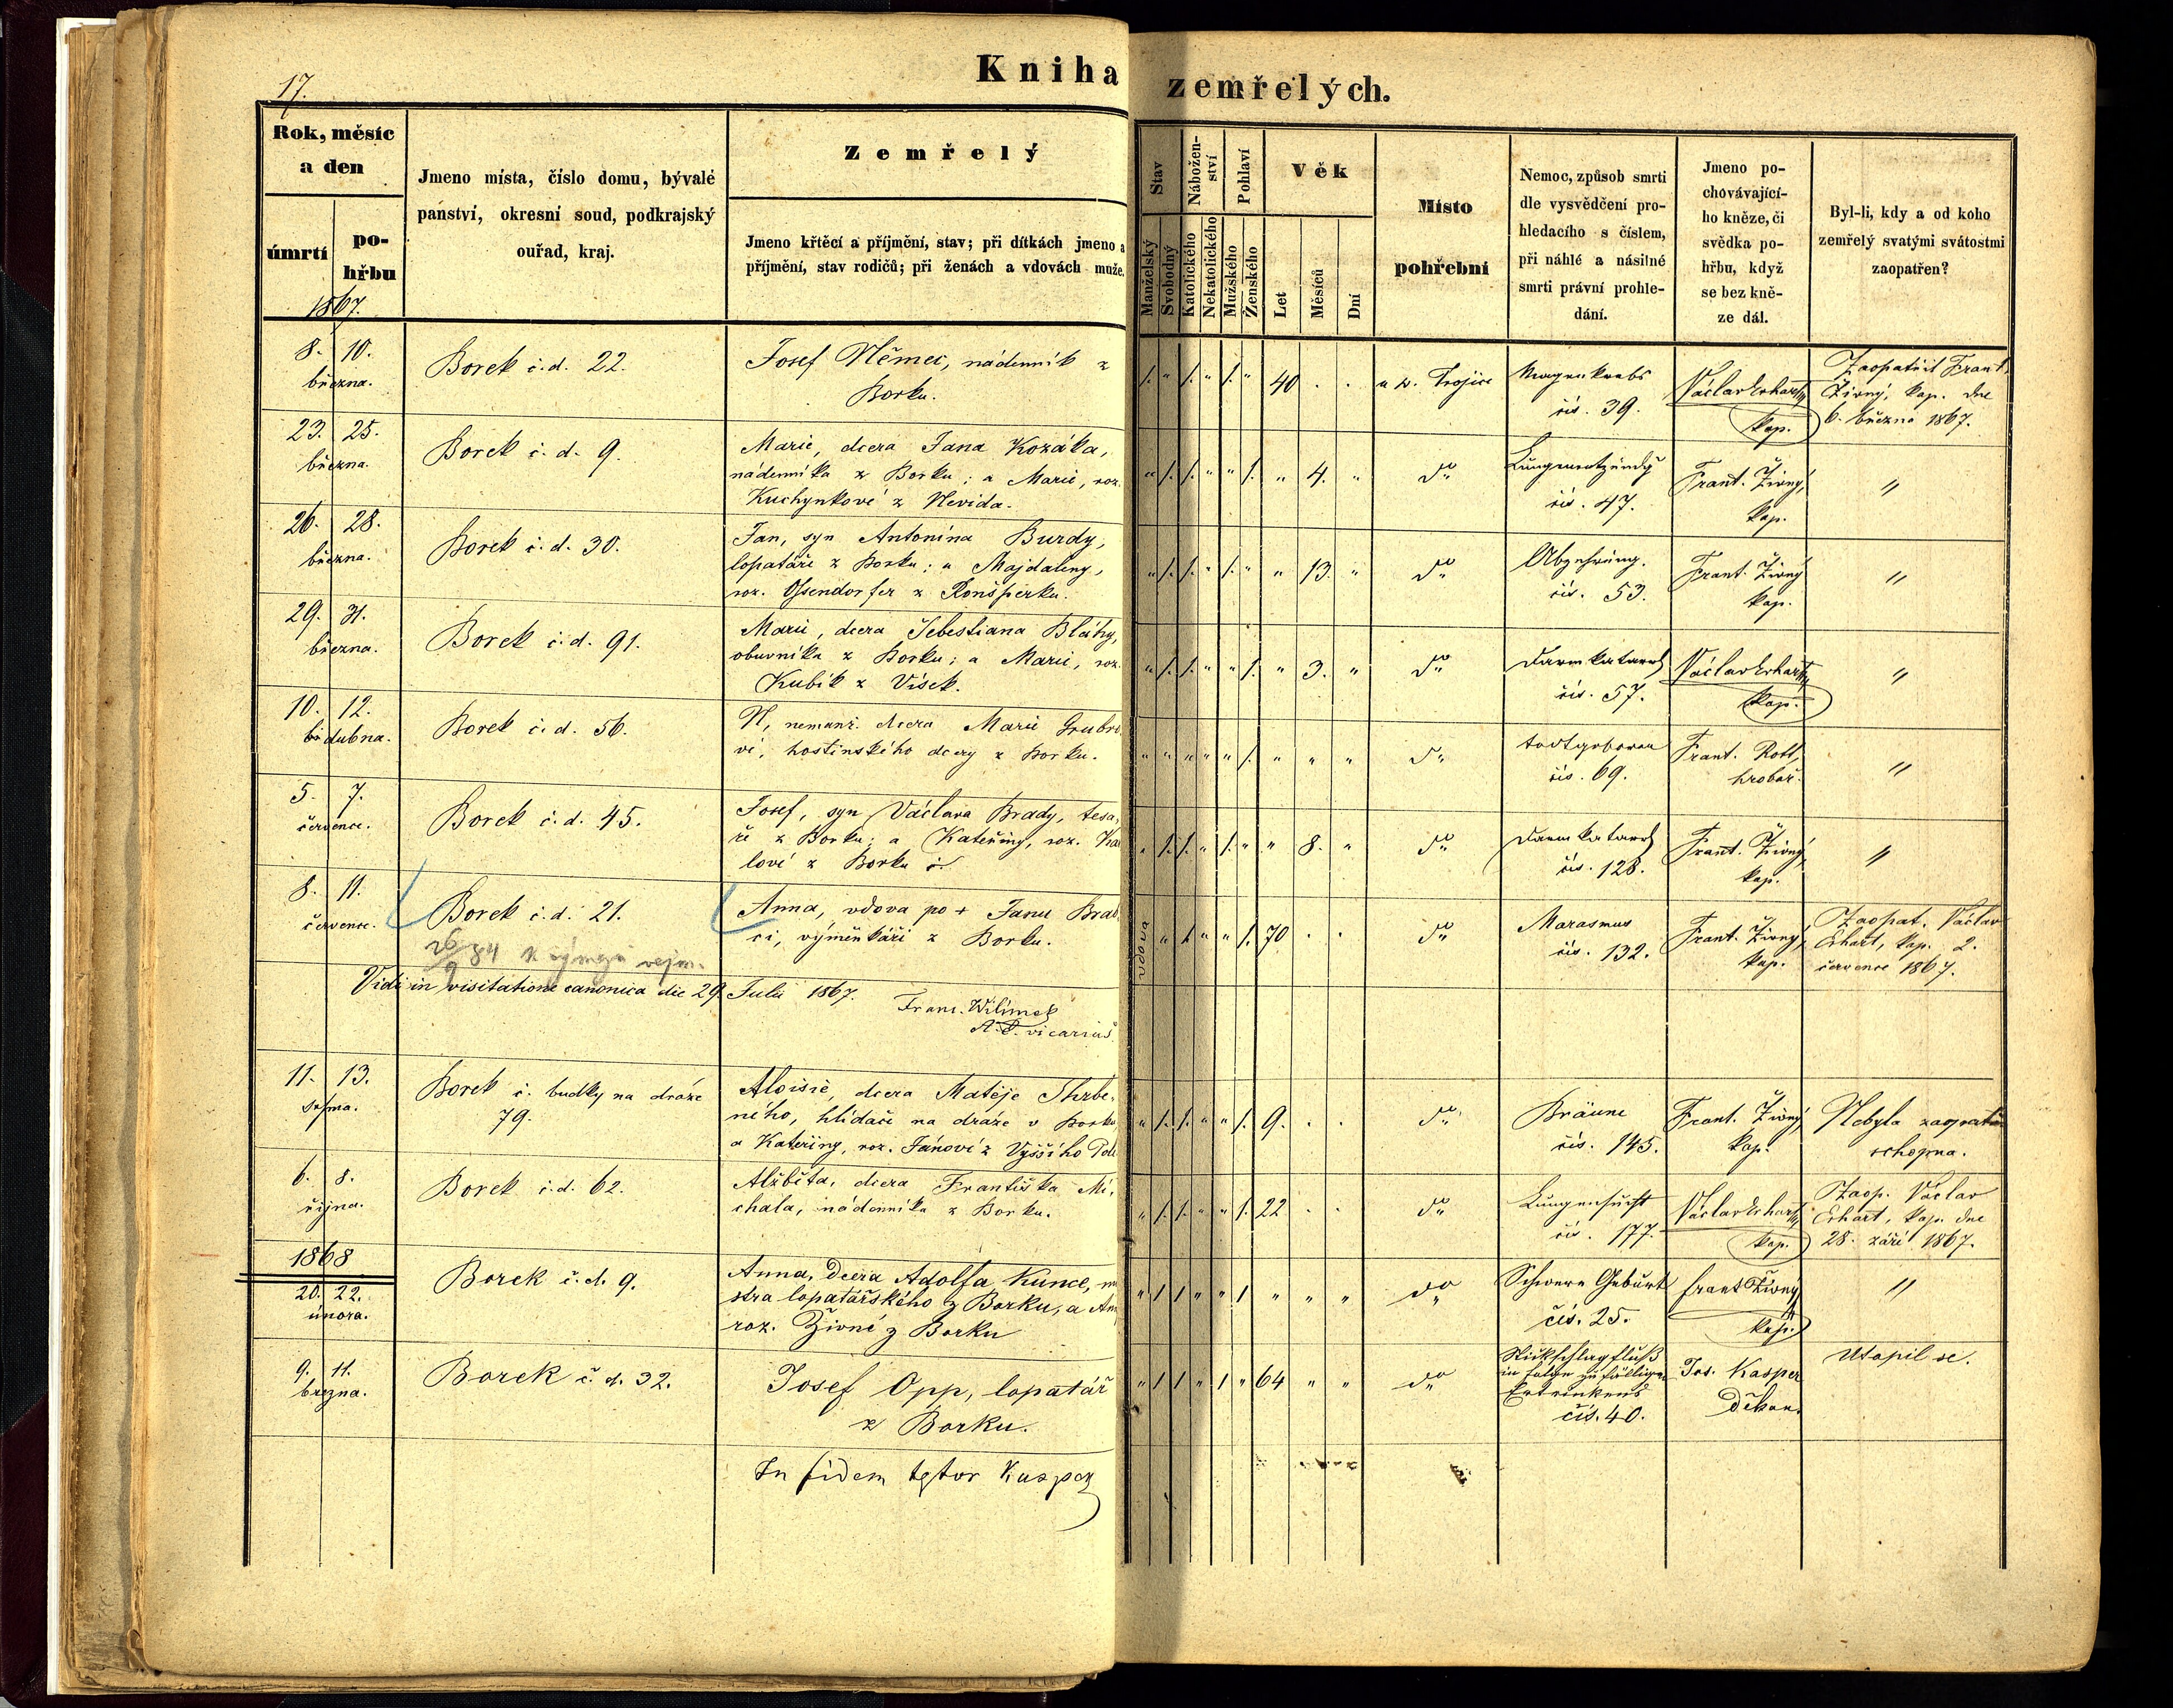 17.
Kniha zemřelých.
Rok, měsíc
a den
úmrtí
po-
hřbu
1867.
Jmeno místa, číslo domu, bývalé
panství, okresní soud, podkrajský
ouřad, kraj.
Zemřelý
Jmeno křtěcí a příjmění, stav; při dítkách jmeno a
příjmění, stav rodičů; při ženách a vdovách muže.
Stav
Manželský
Svobodný
Nábožen-
ství
Katolického
Nekatolického
Pohlaví
Mužského
Ženského
Věk
Let
Měsíců
Dní
Místo
pohřební
Nemoc, způsob smrti
dle vysvědčení pro-
hledacího s číslem,
při náhlé a násilné
smrti právní prohle-
dání.
Jmeno po-
chovávající-
ho kněze, či
svědka po-
hřbu, když
se bez kně-
ze dál.
Byl-li, kdy a od koho
zemřelý svatými svátostmi
zaopatřen?
8. 10.
března.
Borek č.d. 22.
Josef Němec, nádenník z
Borku.
1. " 1. " 1. " 40 . .
u sv. Trojice
Magenkrebs
čís. 39.
Václav Erhart
kap.
Zaopatřil Frant.
Živný, kap. dne
6. března 1867.
23. 25.
března.
Borek č. d. 9.
Marie, dcera Jana Kozáka,
nádenníka z Borku; a Marie, roz.
Kuchynkové z Nevida.
" 1. 1. " " 1. " 4. "
do
Lungenentzündg
čís. 47.
Frant. Živný,
kap.
"
26. 28.
března.
Borek č. d. 30.
Jan, syn Antonína Burdy,
lopatáře z Borku; a Majdaleny,
roz. Ossendorfer z Ronšperku.
" 1. 1. " 1. " " 13. "
do
Abzehrung.
čís. 53.
Frant. Živný
kap.
"
29. 31.
března.
Borek č. d. 91.
Marie, dcera Šebestiana Bláhy,
obuvníka z Borku; a Marie, roz.
Kubík z Vísek.
" 1. 1. " " 1. " 3. "
do
Darmkatarrh
čís. 57.
Václav Erhart
kap.
"
10. 12.
dubna.
Borek č. d. 56.
N, nemanž. dcera Marie Grubro
vé, hostinského dcery z Borku.
" " " " " 1. " " "
do
todtgeboren
čís. 69.
Frant. Rott,
hrobař.
"
5. 7.
července.
Borek č. d. 45.
Josef, syn Václava Brady, tesa-
ře z Borku; a Kateřiny, roz.
lové z Borku
" 1. 1. " 1. " " 8. "
do
Darmkatarrh
čís. 128.
Frant. Živný,
kap.
"
8. 11.
července.
Borek č. d. 21.
26/9 84
Anna, vdova po + Janu Brab
ci, výměnkáři z Borku.
vdova " 1. " " 1. 70 . .
do
Marasmus
čís. 132.
Frant. Živný,
kap.
Zaopat. Václav
Erhart, kap. 2.
července 1867.
Vidi in visitatione canonica die 29. Julii 1867.
Franc. Wilímek
vicarius
11. 13.
srpna.
Borek č. budky na dráze
79.
Aloisie, dcera Matěje Shrbe-
ného, hlídače na dráze v Borku
a Kateřiny, roz. Jánové z Vyššího
" 1. 1. " " 1. 9. . .
do
Bräune
čís. 145.
Frant. Živný
kap.
Nebyla zaopatře
schopna.
6. 8.
října.
Borek č. d. 62.
Alžběta, dcera Františka Mi-
chala, nádenníka z Borku.
" 1. 1. " " 1. 22 . .
do
Lungensucht
čís. 177.
Václav Erhart
kap.
Zaop. Václav
Erhart, kap. dne
28. září 1867.
1868
20. 22.
února.
Borek č. d. 9.
Anna, Dcera Adolfa Kunce, mi
stra lopatářského z Borku, a An
roz. Živné z Borku
" 1 1 " " 1 " " "
do
Schwere Geburt
čís. 25.
Frant Živný
kap.
"
9. 11.
března.
Borek č. d. 32.
Josef Opp, lopatář
z Borku.
" 1 1 " 1 " 64 " "
do
Stickschlagfluß
in Folge zufälligen
Ertrinkens
čís. 40.
Jos. Kasper
Děkan.
Utopil se.
In fidem testor Kasper